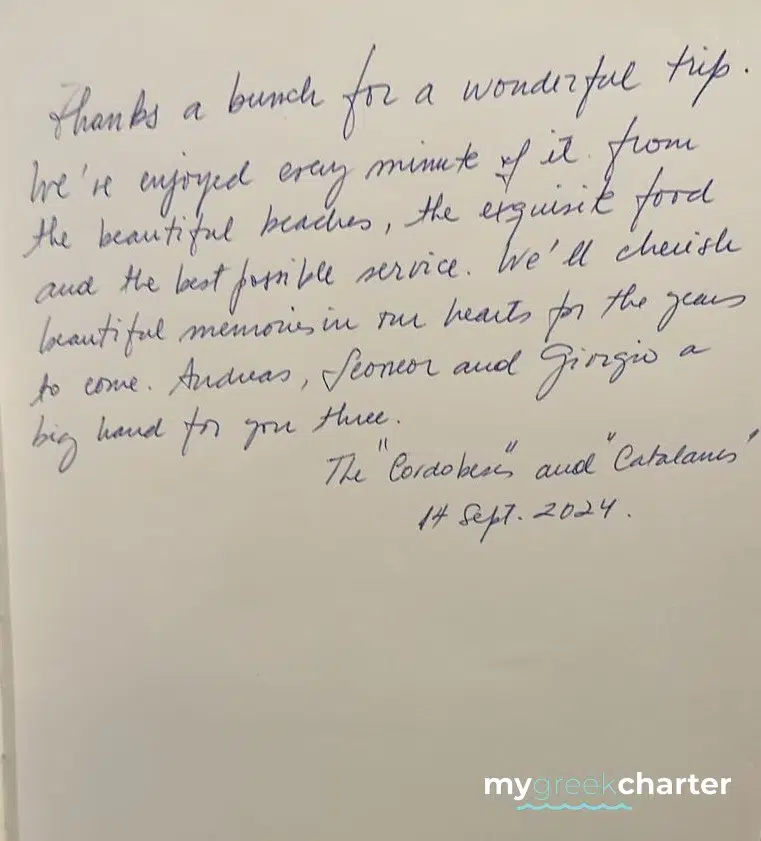 Thanks a bunch for a wonderful trip.
We've enjoyed every minute of it. from
the beautiful beaches, the exquisite food
and the best possible service. We'll cherish
beautiful memories in our hearts for the years
to come. Andreas, and Giorgio a
big hand for you three.
The "Cordobeses" and "Catalanes"
14 Sept. 2024.
mygreekcharter